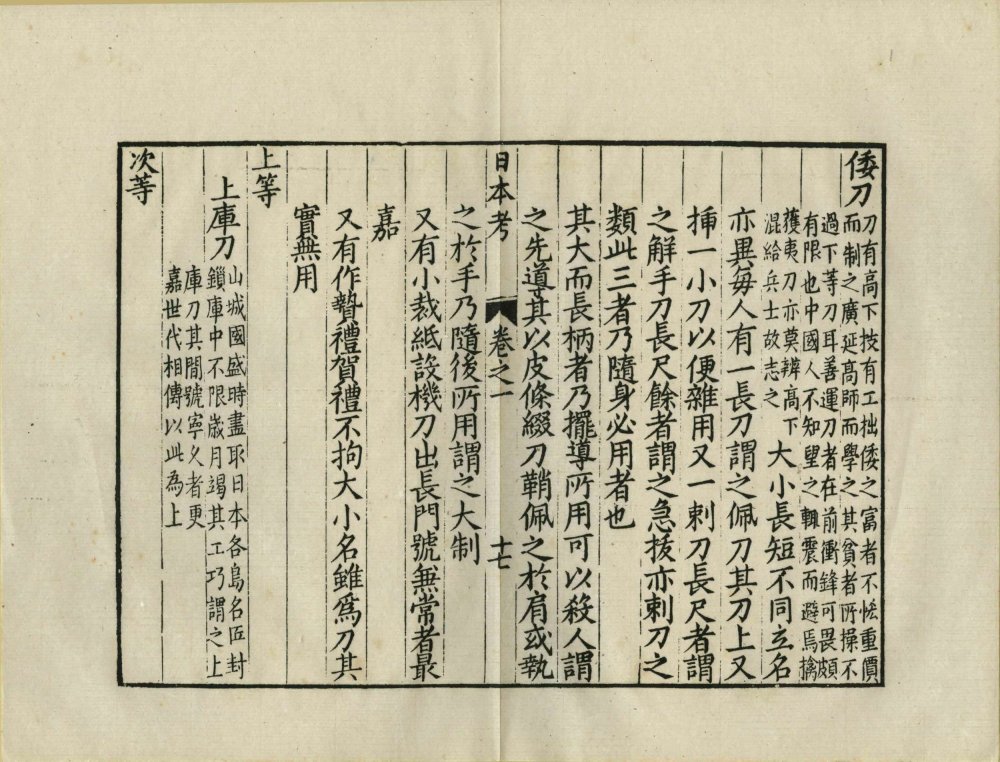 倭刀
刀有高下技有工拙倭之富者不恡重價
而制之廣延高師而學之其貧者所操不
過下等刀耳善運刀者在前衝鋒可畏頗
有限也中國人不知望之輒震而避焉擒
獲夷刀亦莫辨高下
混給兵士故志之
大小長短不同立名
亦異每人有一長刀謂之佩刀其刀上又
挿一小刀以便雜用又一刺刀長尺者謂
之解手刀長尺餘者謂之急㧞亦刺刀之
類此三者乃隨身必用者也
其大而長柄者乃擺導所用可以殺人謂
之先導其以皮條綴刀鞘佩之於肩或執
日本考
卷之一
十七
之於手乃隨後所用謂之大制
又有小裁紙設機刀出長門號無常者最
嘉
又有作贄禮賀禮不拘大小名雖爲刀其
實無用
上等
上庫刀
山城國盛時盡取日本各島名匠封
鎖庫中不限歲月竭其工巧謂之上
庫刀其間號寧久者更
嘉世代相傳以此為上
次等